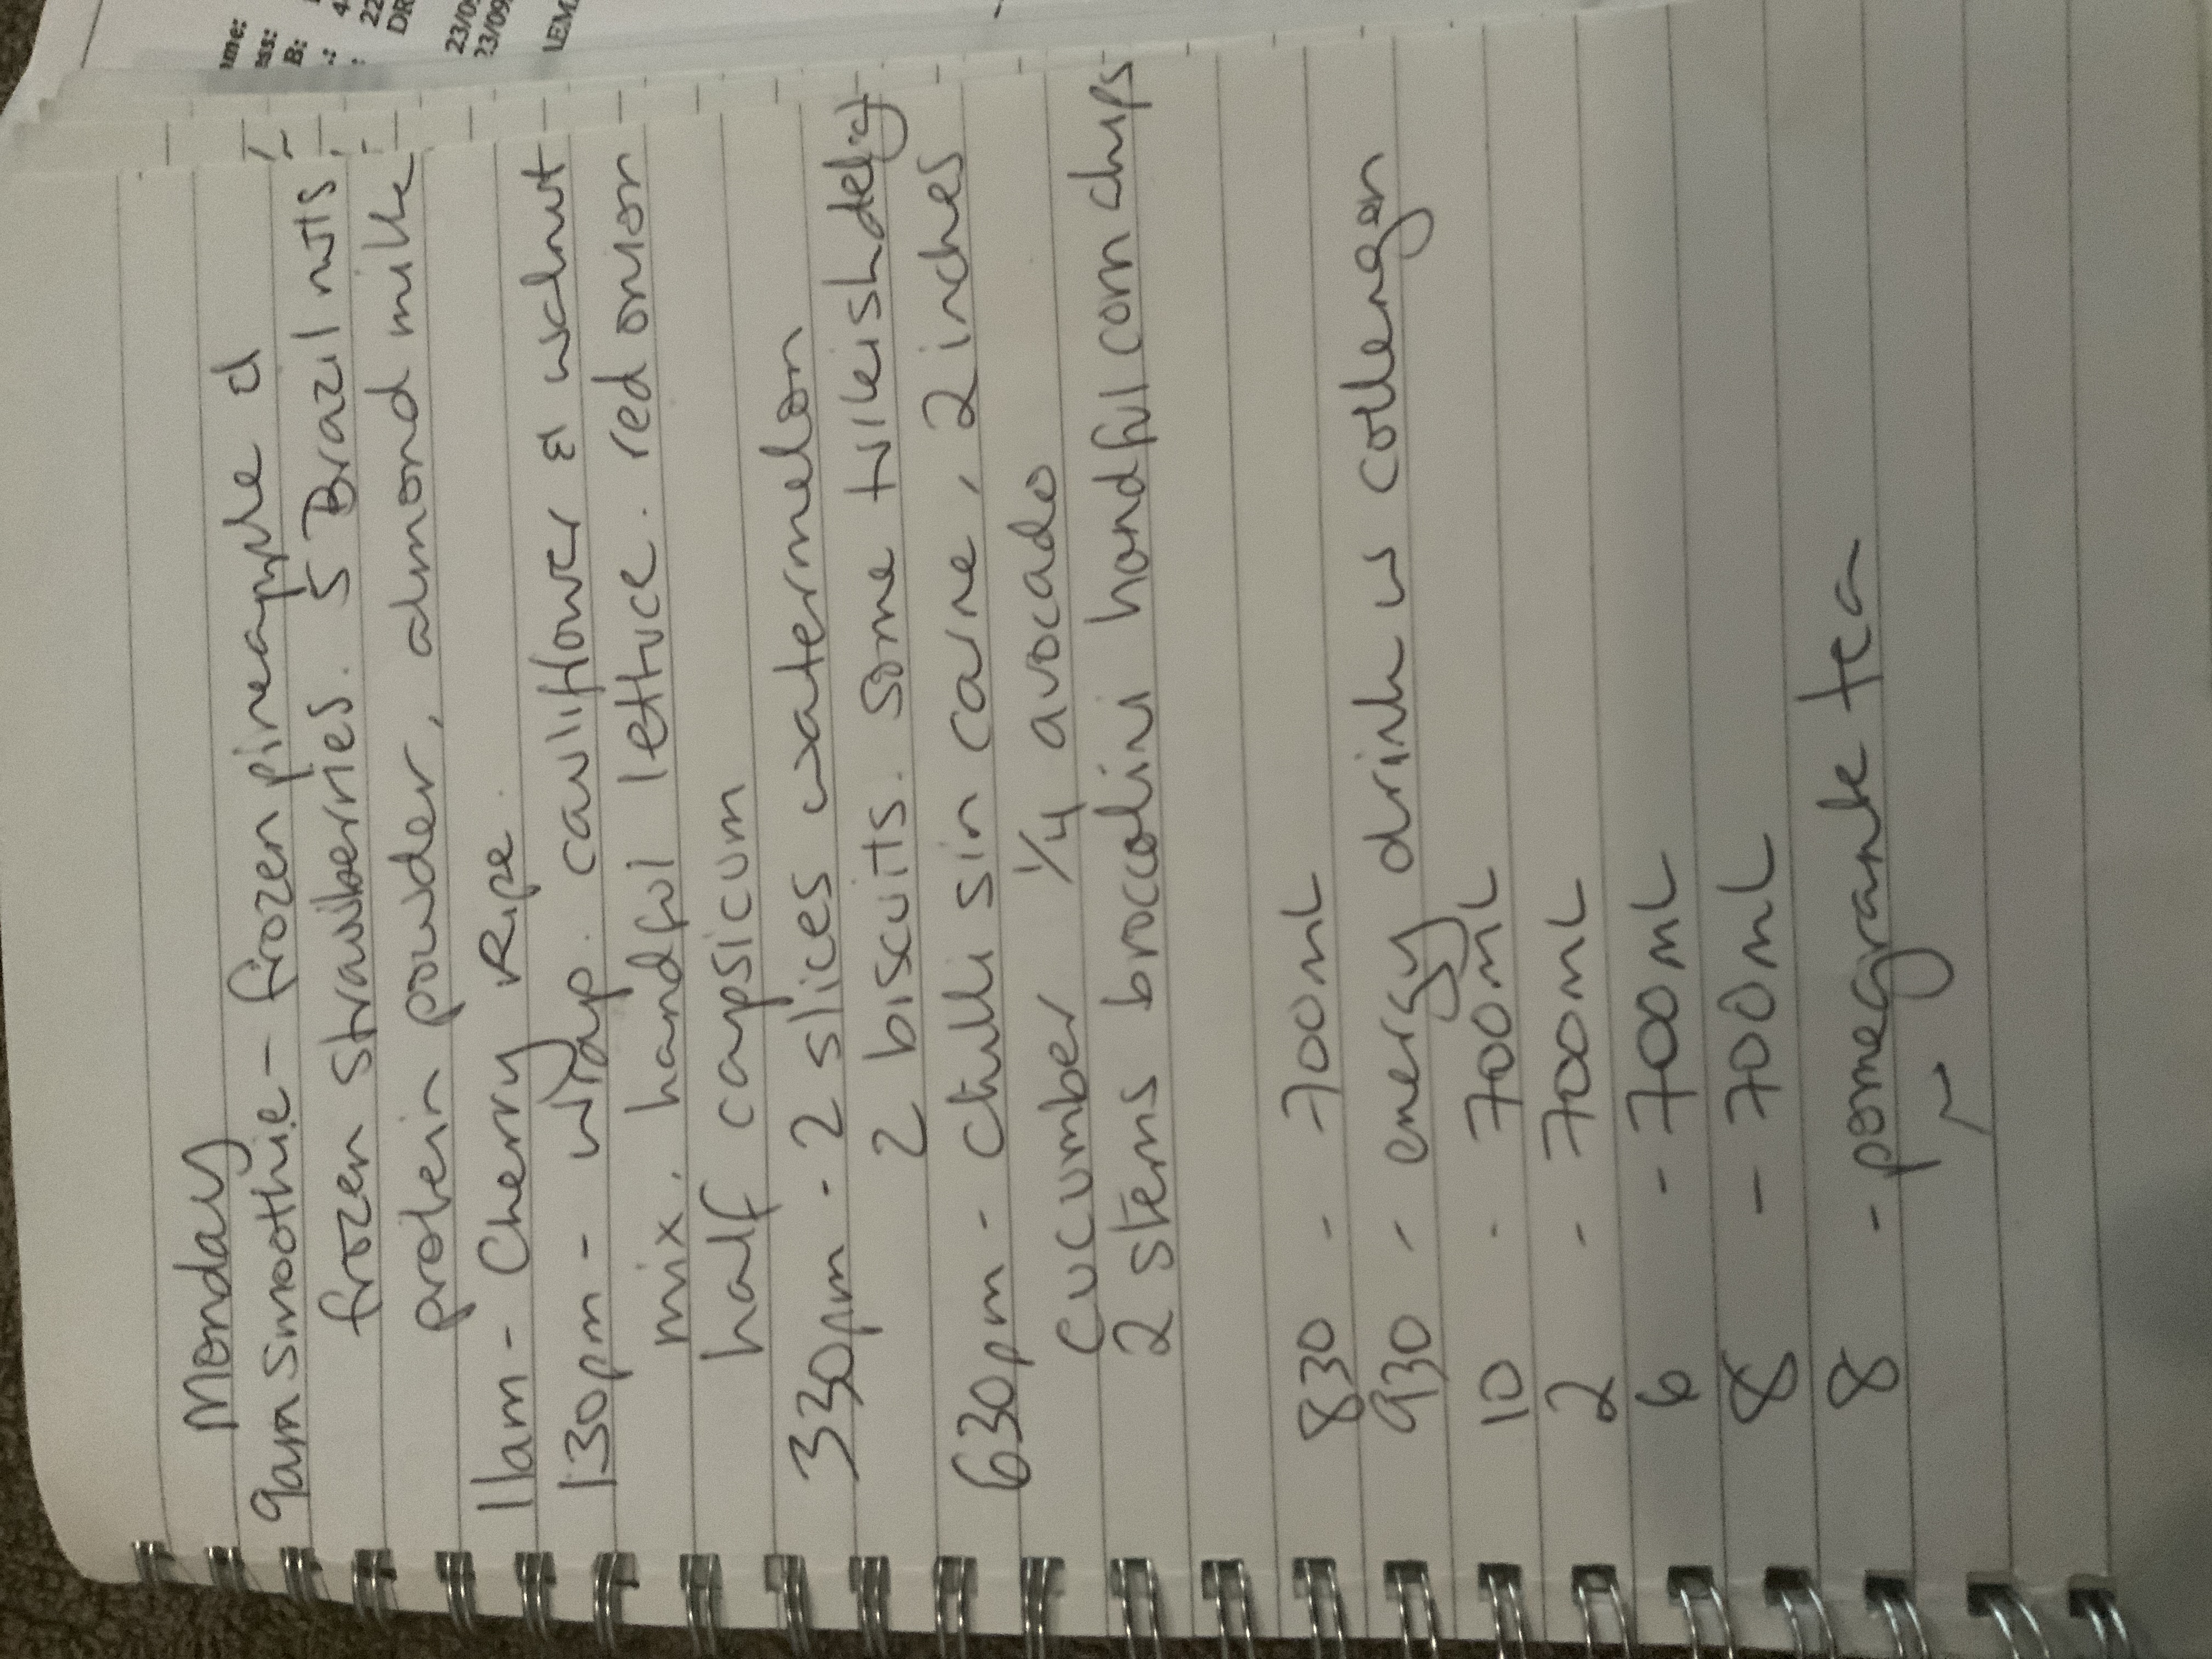 Monday
9am smoothie - frozen pineapple d
frozen strawberries. 5 Brazil nuts
protein powder, almond milk
11am - Cherry Ripe.
130pm - wrap. cauliflower & walnut
mix. handful lettuce. red onion
half capsicum
330pm - 2 slices watermelon
2 biscuits. some
630pm - chilli sin carne, 2 inches
cucumber 1/4 avocado
2 stems broccolini handful corn chips
830 - 700mL
930 - energy drink w collengen
10 - 700mL
2 - 700mL
6 - 700mL
8 - 700mL
8 - pomegranate tea
ame:
ess:
B:
23/09
23/09